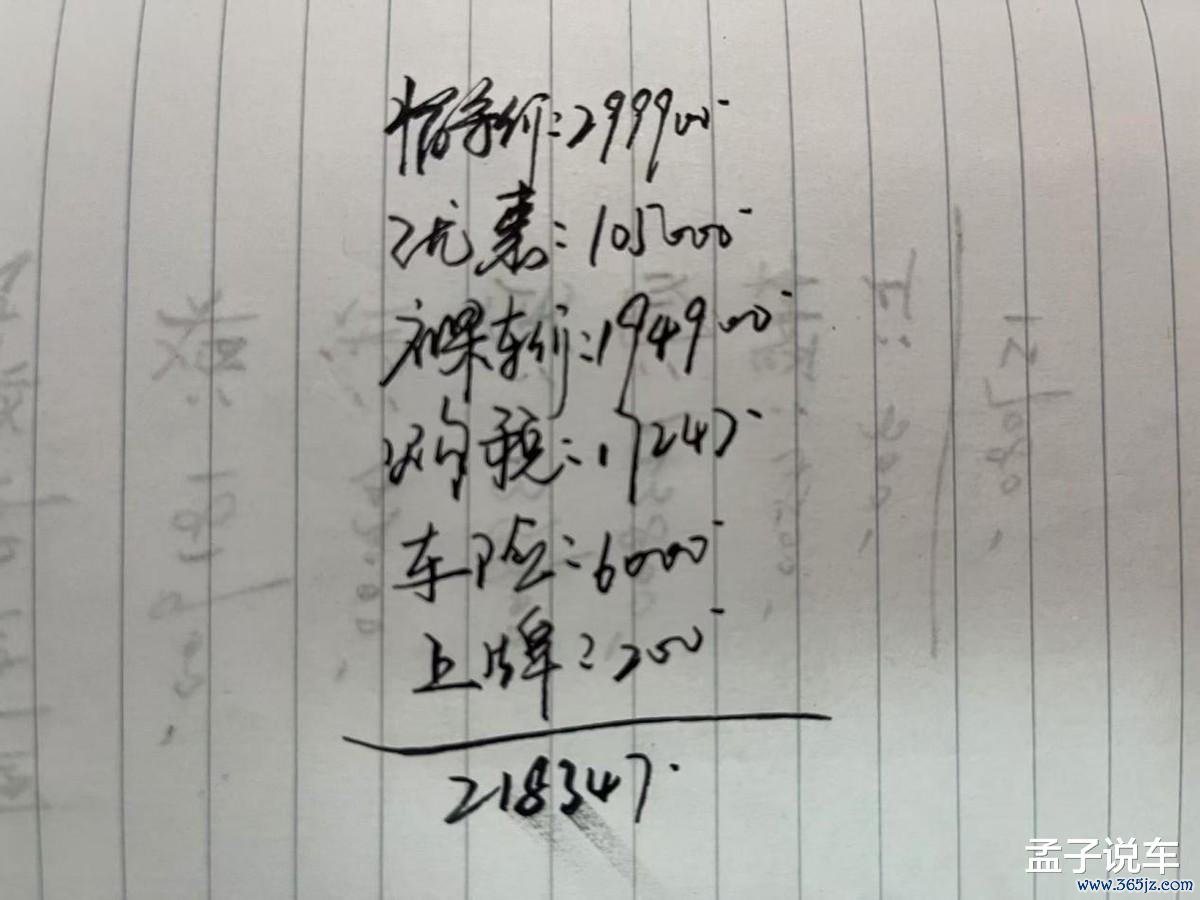 指导价:299900
优惠:105000
裸车价:194900
购税:17247
车险:6000
上牌:200
218347
孟子说车
www.365jz.com